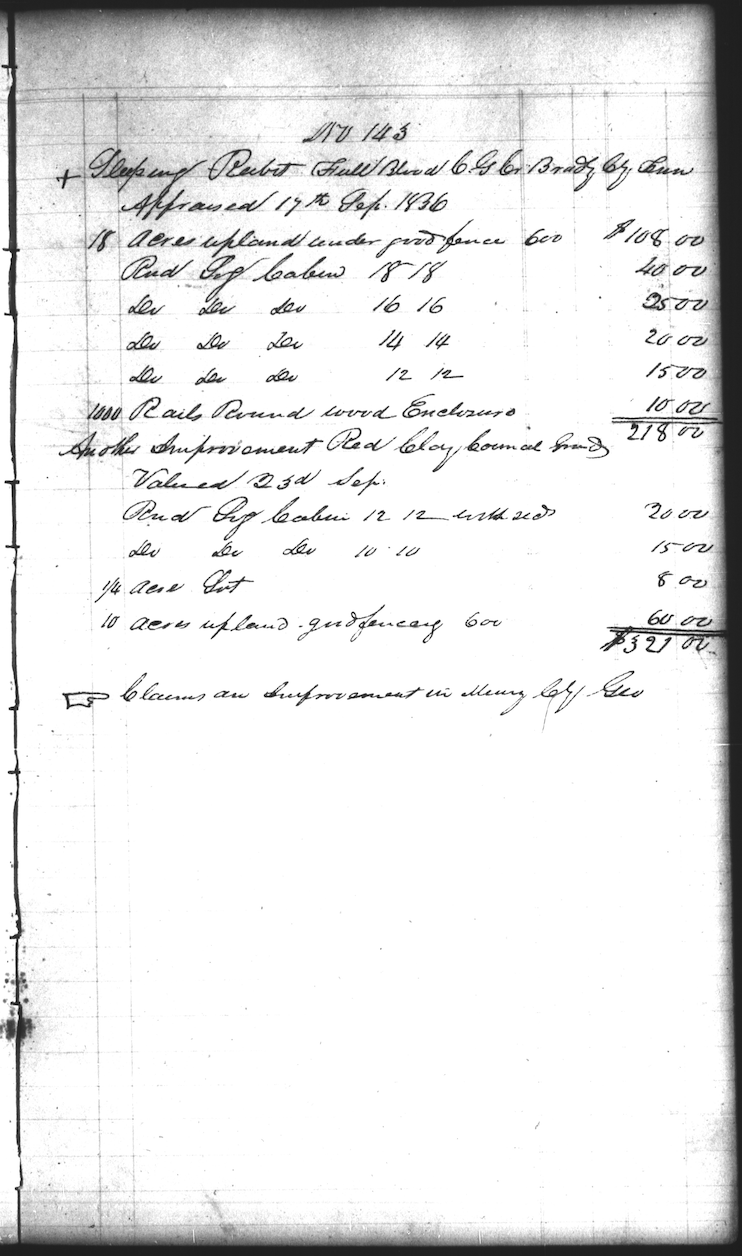 No 143
+ Sleeping Rabit Full Blood C G Cr Brady Cty Tenn
Appraised 17th Sep. 1836
18 Acres upland under good fence 600 $108 00
Rnd Log Cabin 18 18 40 00
Do Do Do 16 16 25 00
Do Do Do 14 14 20 00
Do Do Do 12 12 15 00
1000 Rails Round wood Enclosure 10 00
218 00
Another Improvement Red Clay Council Grnds
Valued 23d Sep.
Rnd Log Cabin 12 12 with 20 00
Do Do Do 10 10 15 00
1/4 Acre Lot 8 00
10 Acres upland good fencing 600 60 00
$321 00
☞ Claims an Improvement in Murry Cty Geo